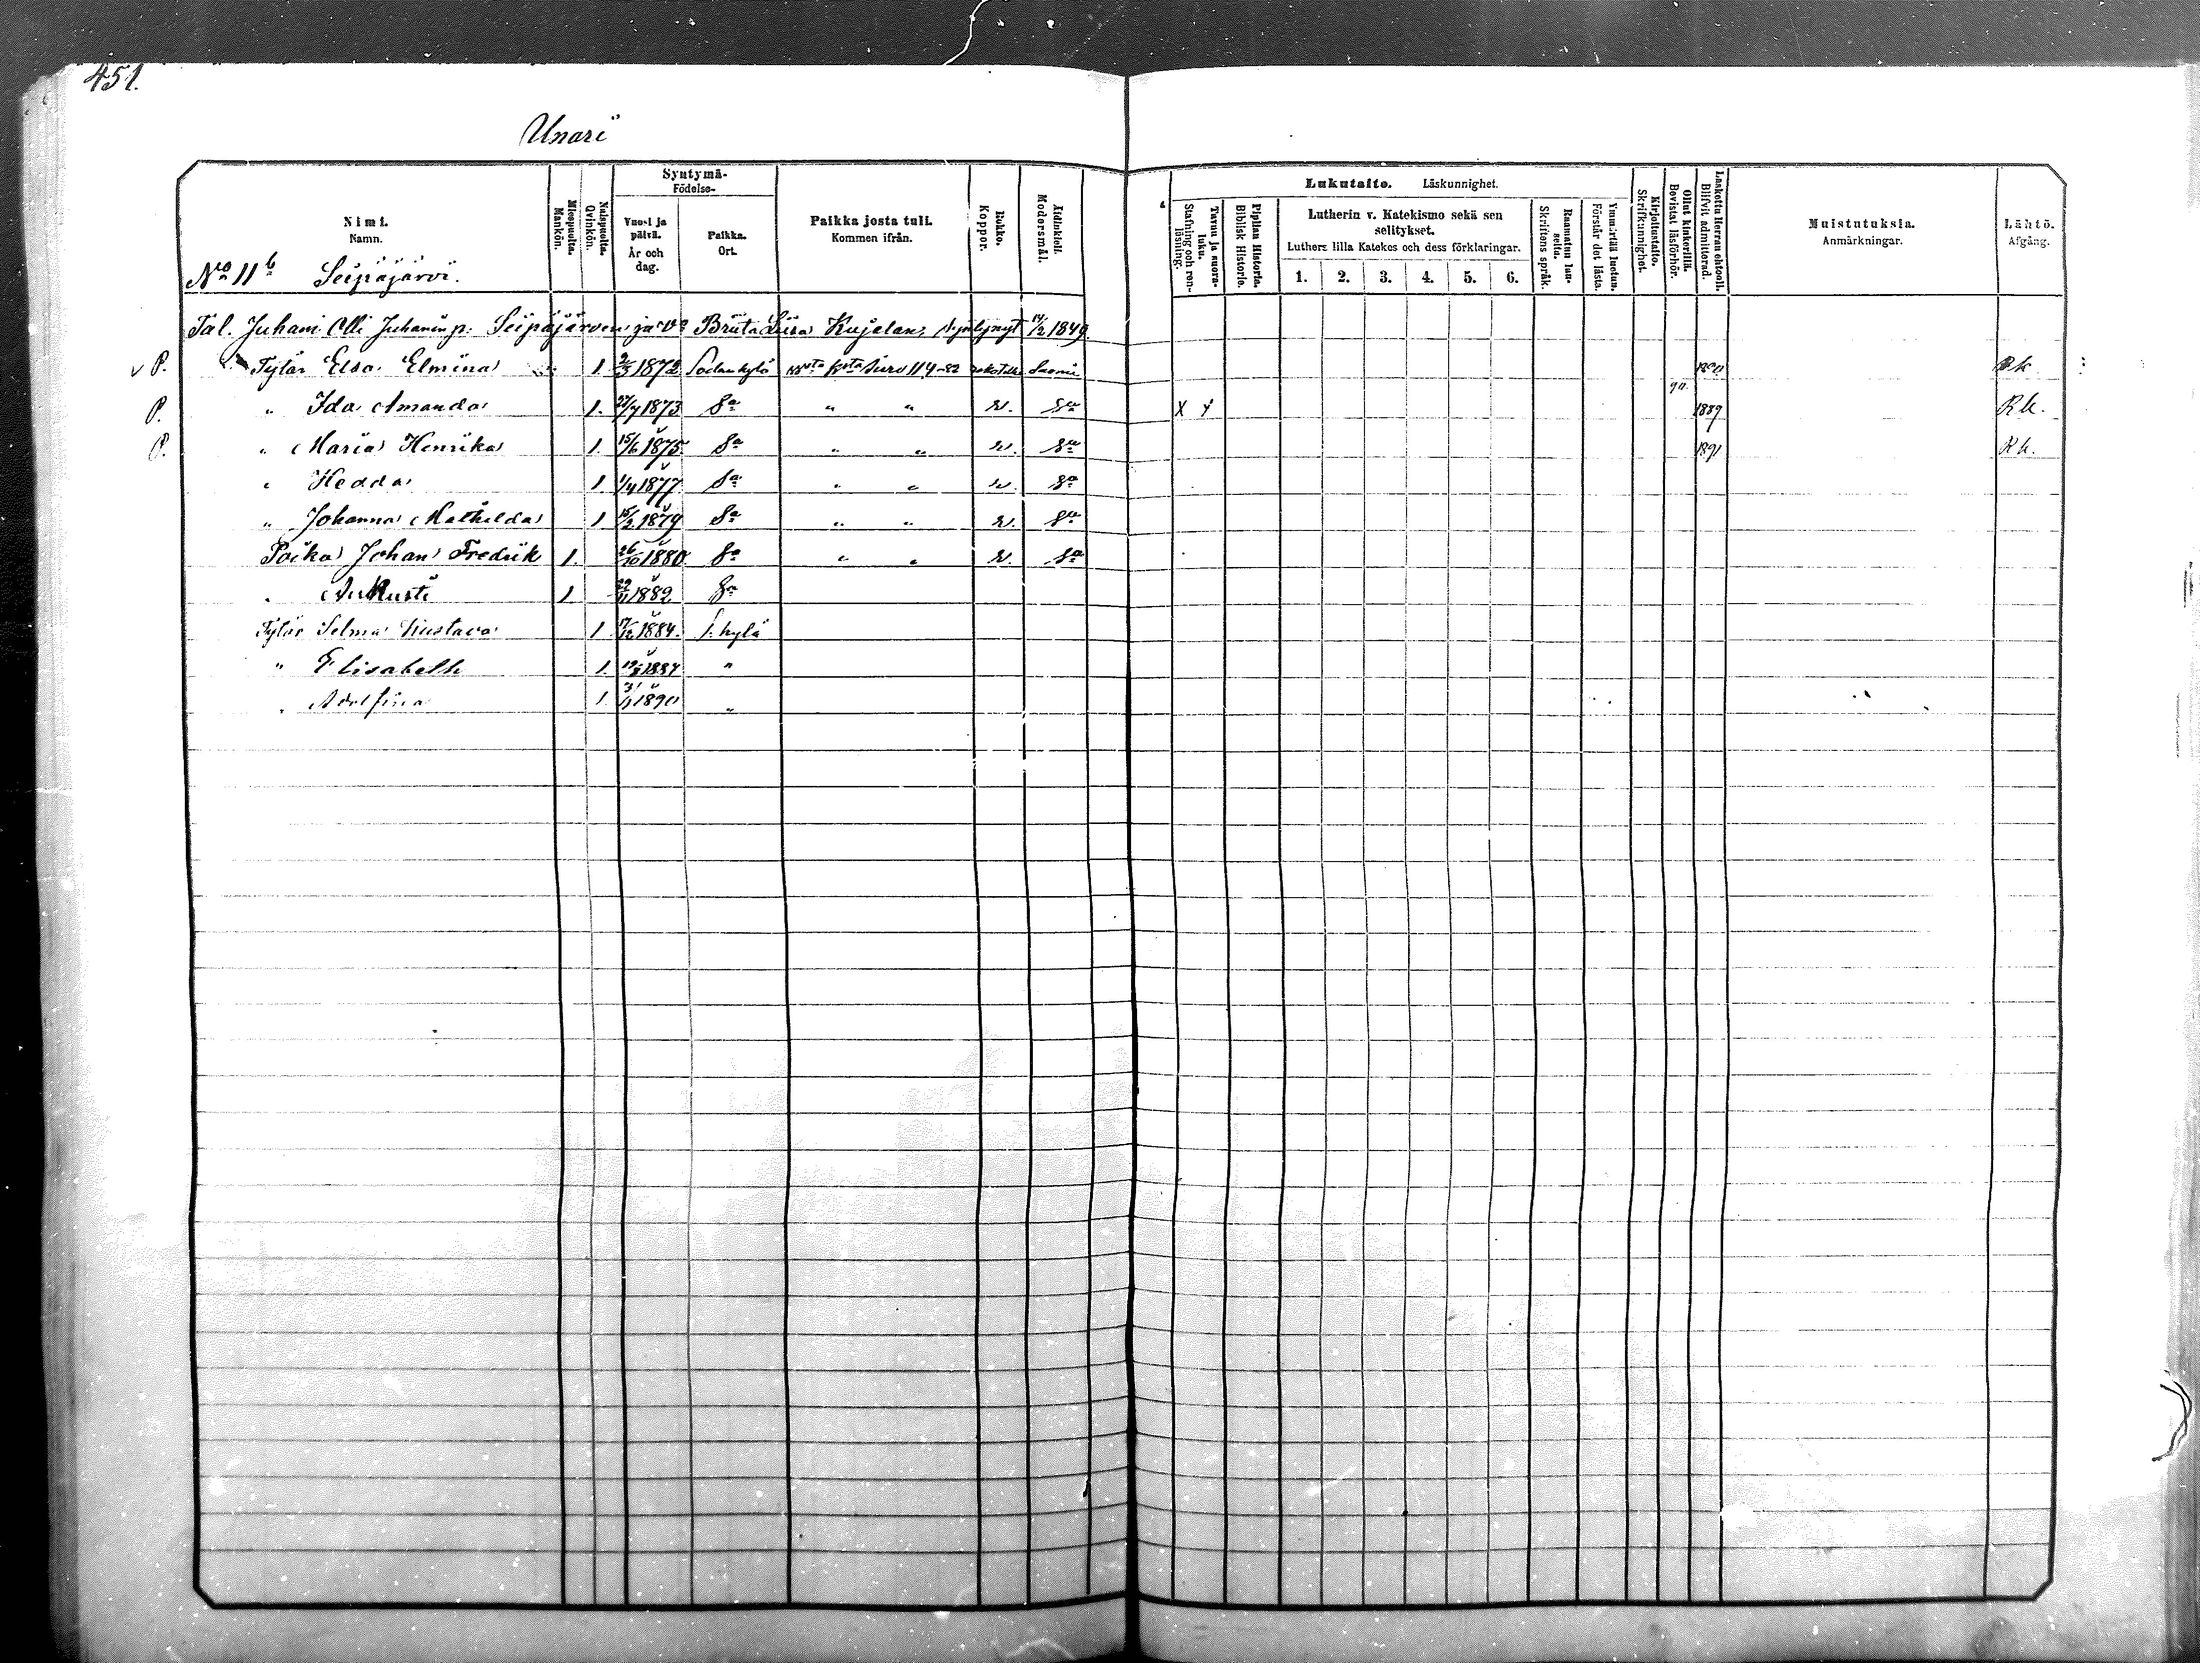 451.
Unari
Syntymä-
Födelse-
Nimi.
Namn.
Miespuolta.
Mankön.
Naispuolta.
Qvinkön.
Vuosi ja päivä.
År och dag.
Paikka.
Ort.
Paikka josta tuli.
Kommen ifrån.
Rokko.
Koppor.
Äidinkieli.
Modersmål.
Lukutaito. Läskunnighet.
Tavuu ja suora-luku.
Stafning och ren-läsning.
Piplian Historia.
Biblisk Historie.
Lutherin v. Katekismo sekä sen selitykset.
Luthers lilla Katekes och dess förklaringar.
1. 2. 3. 4. 5. 6.
Raamatun lau-seita.
Skriftens språk.
Ymmärtää luetun.
Förstår det lästa.
Kirjoitustaito.
Skrifkunnighet.
Ollut kinkerillä.
Bevistat läsförhör.
Laskettu Herran ehtool.
Blifvit admitterad.
Muistutuksia.
Anmärkningar.
Lähtö.
Afgång.
No 11 b Seipäjärvi.
Tal. Juhani Olli Juhanin p. Seipäjärven ja Vo Briita Liisa Kujalan, syntynyt 14/2 1849.
v P. Tytär Elsa Elmina 1 2/5 1872 Sodankylä Suomi Rk
P. " Ida Amanda 1. 27/7 1873 Sa " " r. Sa X 90 1889 Rk.
P. " Maria Henrika 1. 15/6 1875 Sa " " r. Sa 1891 Rk.
" Hedda 1. 1/4 1877 Sa " " r. Sa
" Johanna Mathilda 1 15/2 1879 Sa " " r. Sa
Poika Johan Fredrik 1. 26/10 1880 Sa " " r. Sa
" Aukusti 1 29/11 1882 Sa
Tytär Selma Kustava 1 17/12 1884. S. kylä
" Elisabeth 1. 1887 "
" Adolfina 1 1890 "